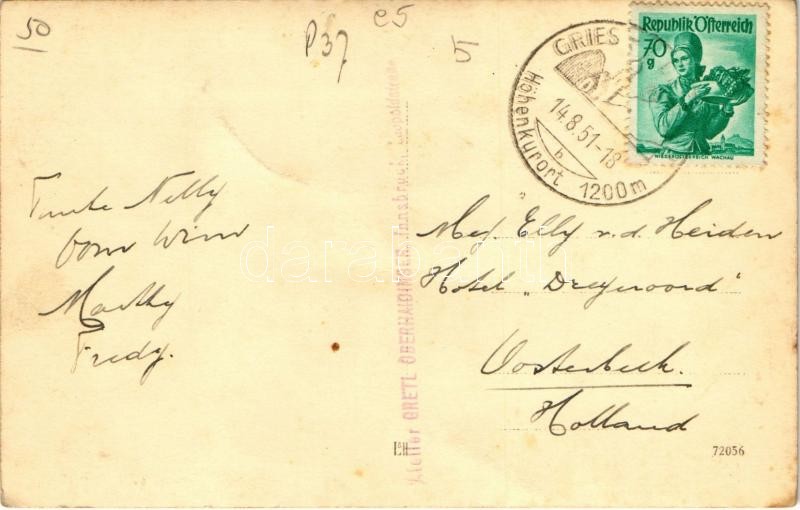 50
P37
c5
51
GRIES
14.8.51-18
b
Höhenkurort 1200m
Republik Österreich
70
g
NIEDERÖSTERREICH WACHAU
Tante Nelly
Oom Wim
Marthy
Fredy.
Atelier GRETL OBERHAIDINGER, Innsbruck, Leopoldstrasse
Mej. Elly v.d. Heiden
Hotel „Dreyeroord"
Oosterbeek.
Holland
72056
darabanth